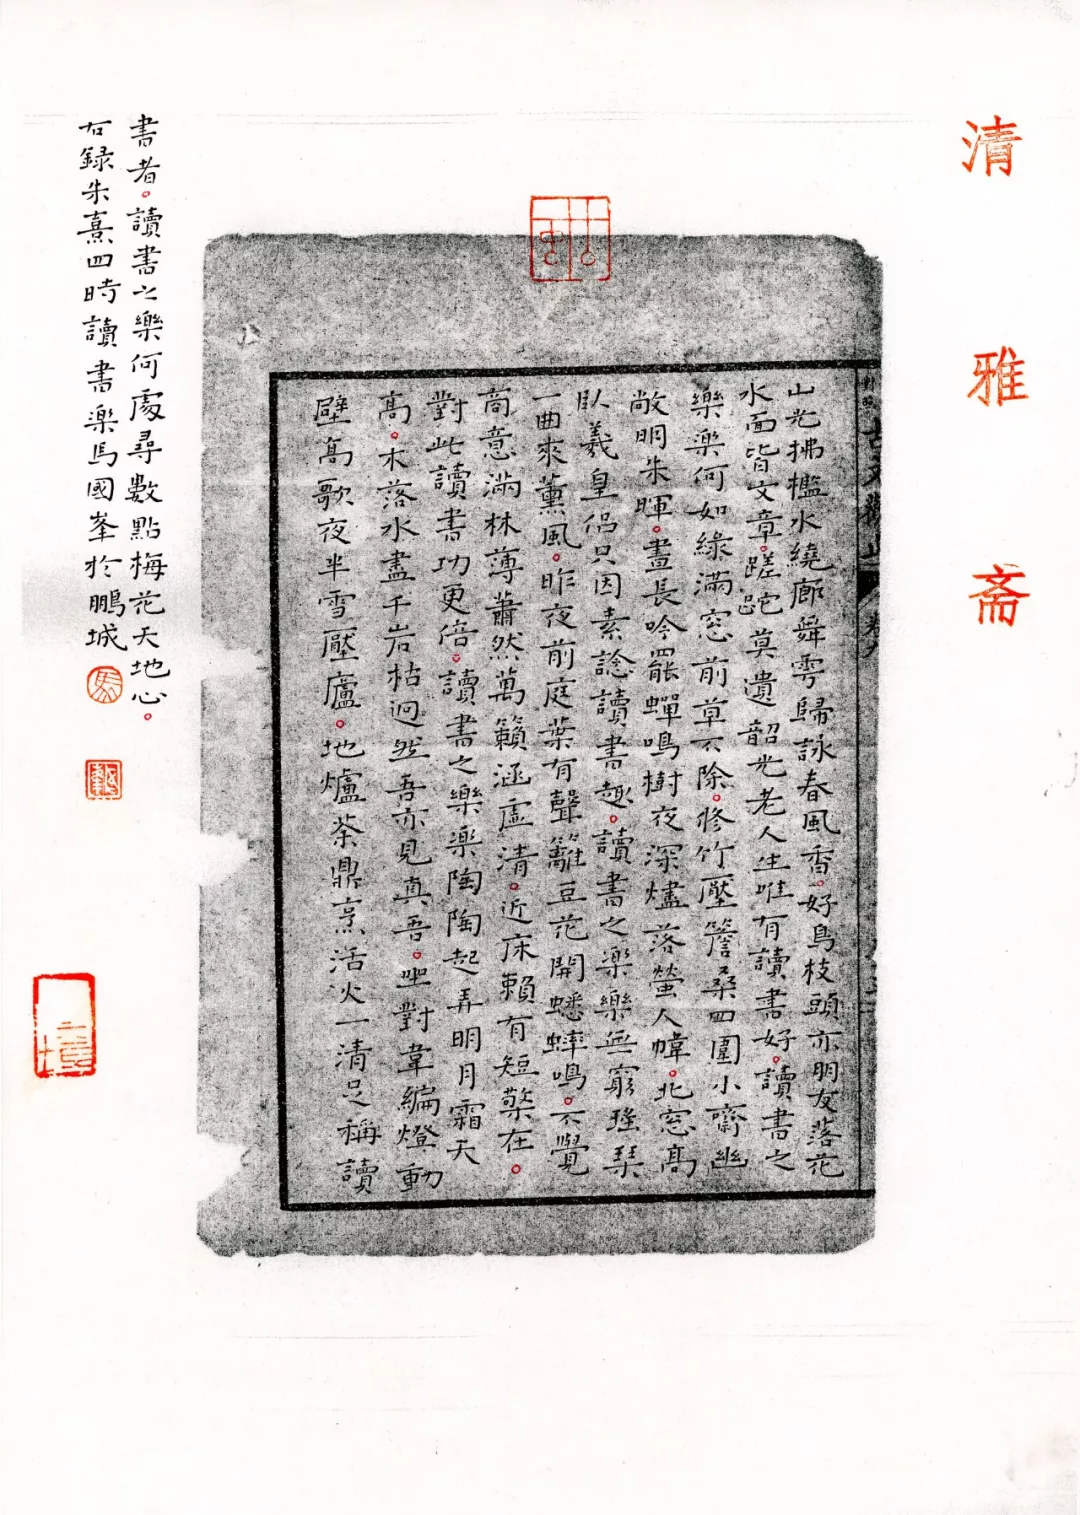 清雅斋
山光拂檻水繞廊舞雩歸詠春風香。好鳥枝頭亦朋友落花
水面皆文章。蹉跎莫遺韶光老人生唯有讀書好。讀書之
樂樂何如綠滿窓前草不除。修竹壓簷桑四圍小齋幽
敞明朱暉。晝長吟罷蟬鳴樹夜深燼落螢入幃。北窓高
臥羲皇侶只因素諗讀書趣。讀書之樂樂無窮瑤琴
一曲來薰風。昨夜前庭葉有聲籬豆花開蟋蟀鳴。不覺
商意滿林薄蕭然萬籟涵虛清。近床賴有短檠在。
對此讀書功更倍。讀書之樂樂陶陶起弄明月霜天
高。木落水盡千岩枯迥然吾亦見真吾。坐對韋編燈動
壁高歌夜半雪壓廬。地爐茶鼎烹活火一清足稱讀
書者。讀書之樂何處尋數點梅花天地心。
右録朱熹四時讀書楽馬國峯於鵬城
馬